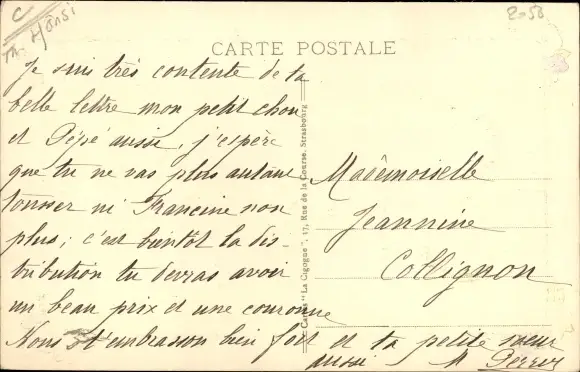 C
Hansi
2-50
CARTE POSTALE
Je suis très contente de ta
belle lettre mon petit chou
et Pépé aussi, j'espère
que tu ne vas plus autant
tousser ni Francine non
plus; c'est bientôt la dis-
tribution tu devras avoir
un beau prix et une couronne
Nous t'embrasson bien fort et ta petite sœur
aussi M Perrin
Cartes "La Cigogne", 17, Rue de la Course, Strasbourg
Mademoiselle
Jeannine
Collignon